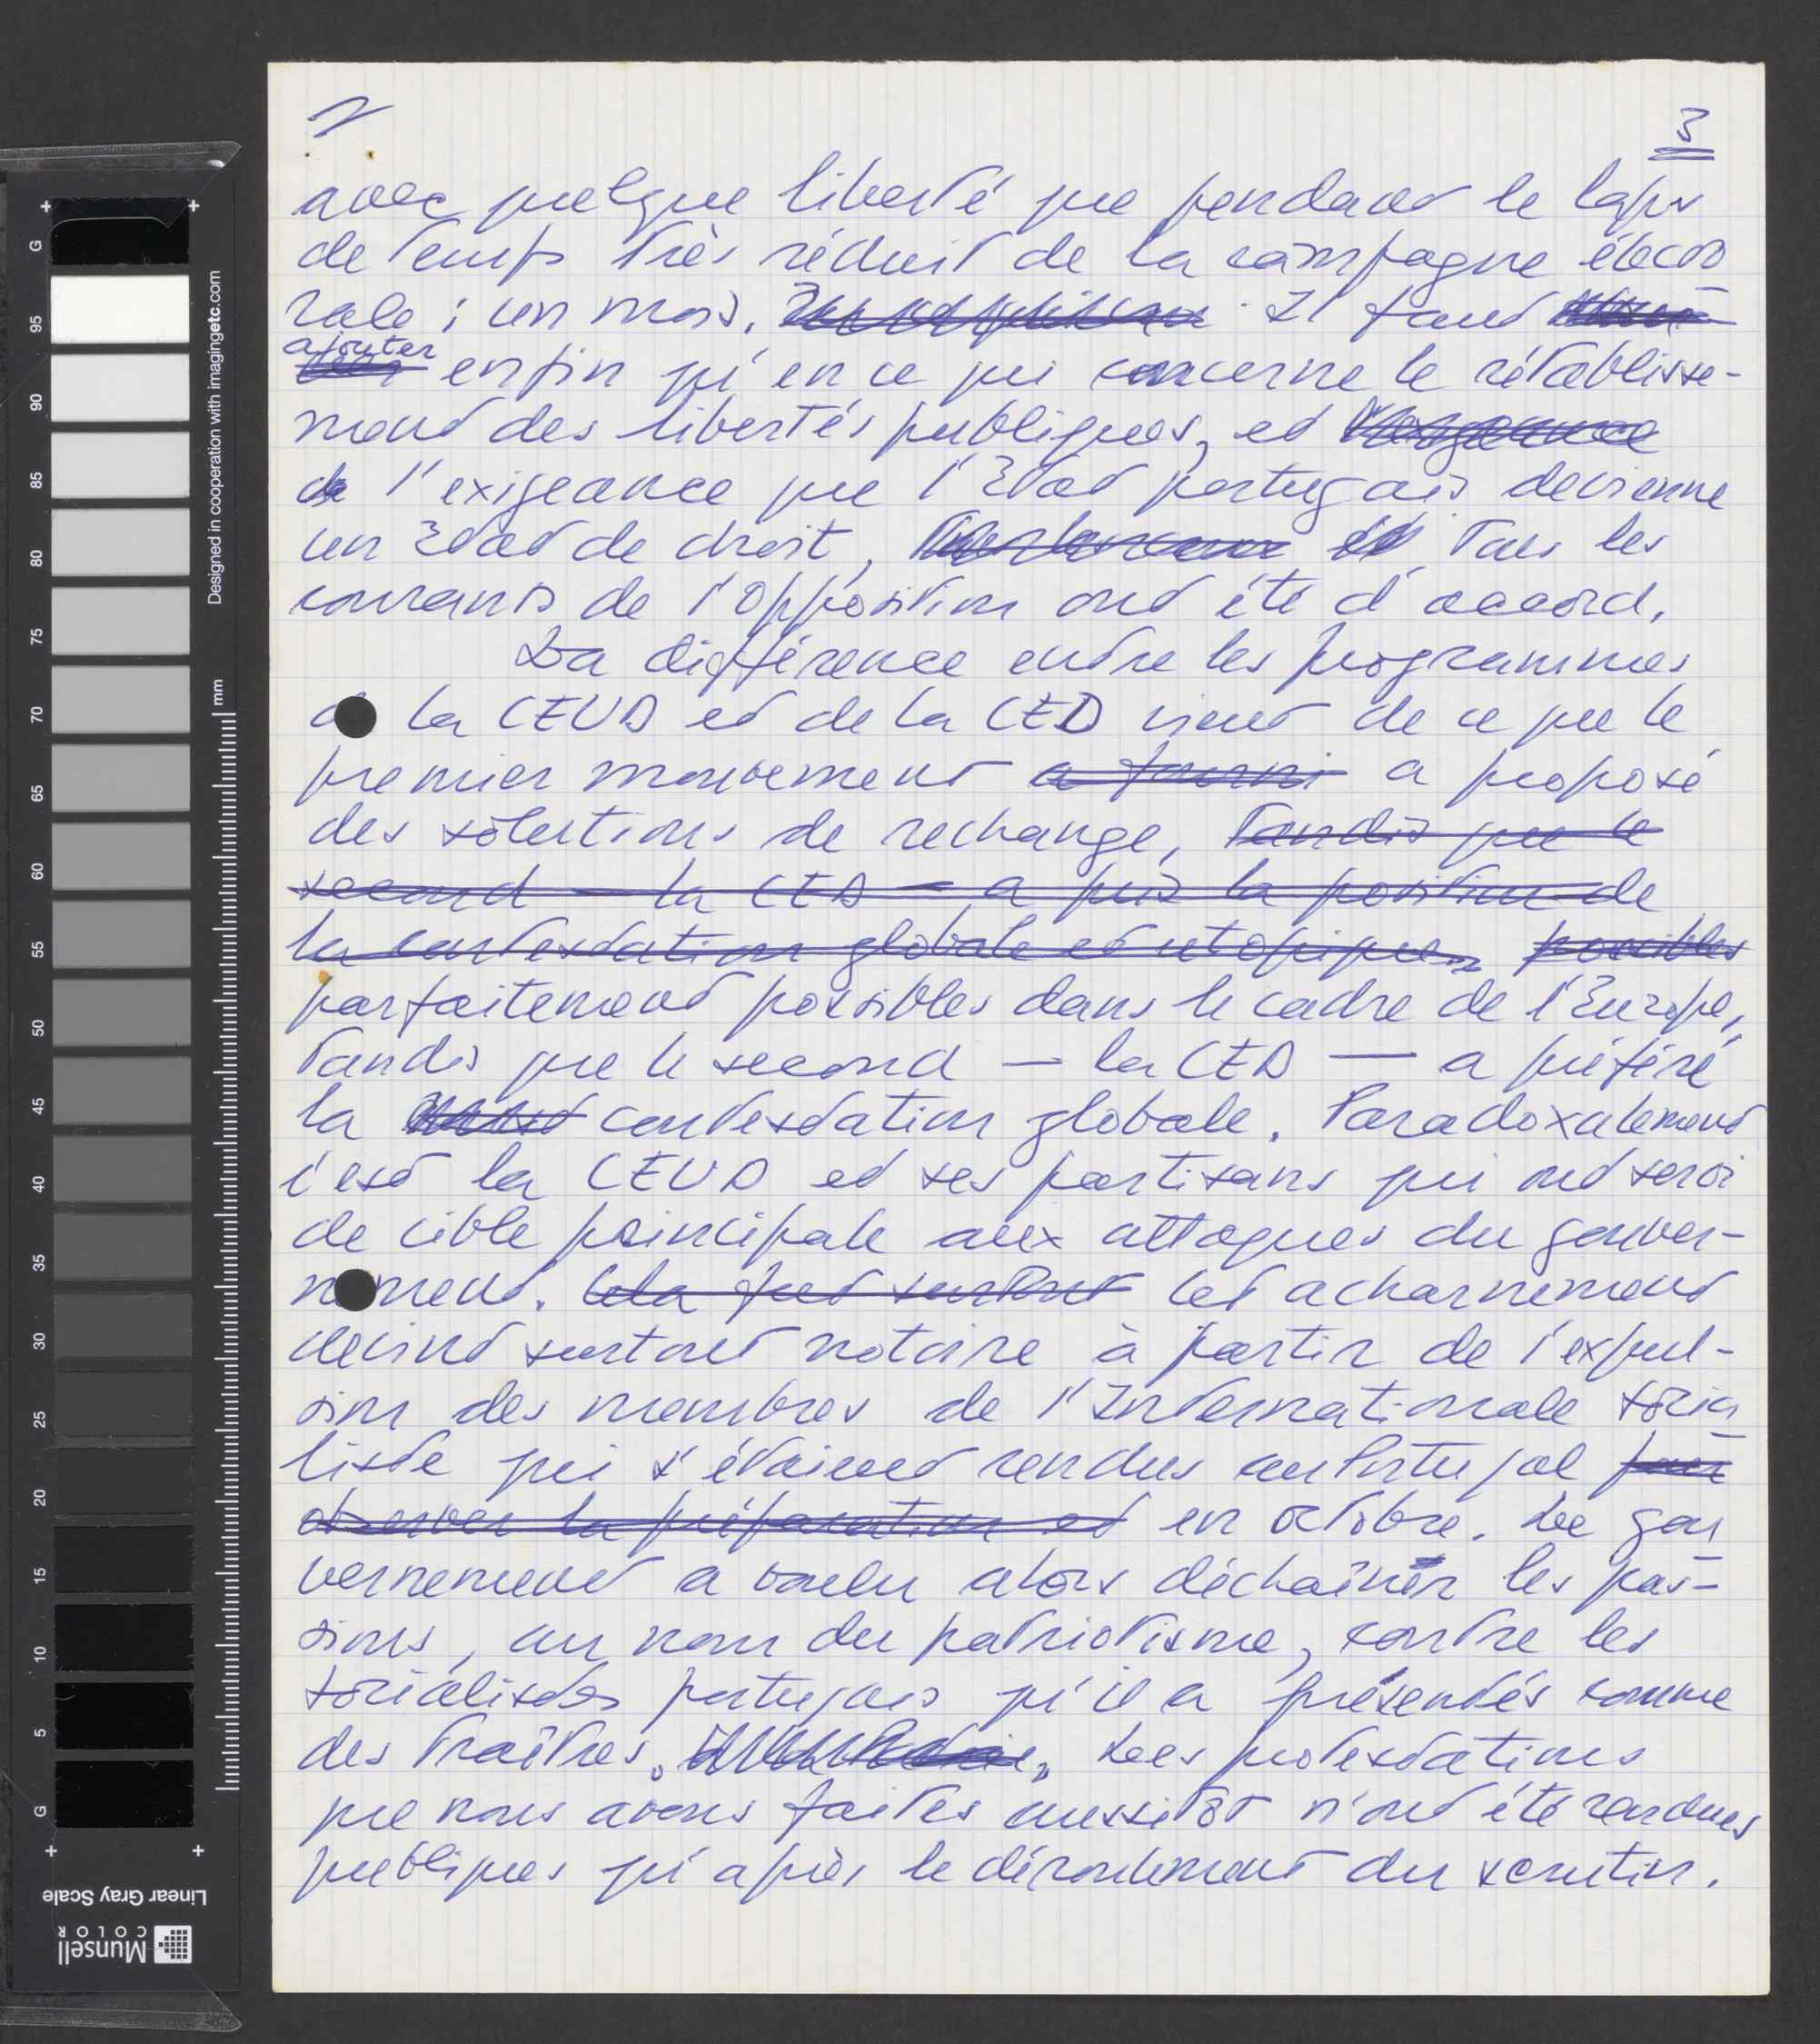 3
avec quelque liberté que pendant le laps
de temps très réduit de la campagne électo
rale : un mois. Il faut
ajouter
enfin qu'en ce qui concerne le rétablisse-
ment des libertés publiques, et l'exigeance
de l'exigeance que l'Etat portugais devienne
un Etat de droit, tous les
courants de l'Opposition ont été d'accord.
La différence entre les programmes
de la CEUD et de la CED vient de ce que le
premier mouvement a fourni a proposé
des solutions de rechange, tandis que le
second — la CED — a pris la position de
la contestation globale et utopique, possibles
parfaitement possibles dans le cadre de l'Europe,
tandis que le second — la CED — a préféré
la contestation globale. Paradoxalement
c'est la CEUD et ses partisans qui ont servi
de cible principale aux attaques du gouver-
nement. Cela fut surtout Cet acharnement
devint surtout notoire à partir de l'expul-
sion des membres de l'Internationale socia
liste qui s'étaient rendus au Portugal pour
observer la préparation et en octobre. Le gou
vernement a voulu alors déchaîner les pas-
sions, au nom du patriotisme, contre les
socialistes portugais qu'il a présentés comme
des traîtres. Les protestations
que nous avons faites aussitôt n'ont été rendues
publiques qu'après le déroulement du scrutin.
Designed in cooperation with imagingetc.com
mm
G
95
90
85
80
75
70
65
60
55
50
45
40
35
30
25
20
15
10
5
G
Linear Gray Scale
Munsell
COLOR